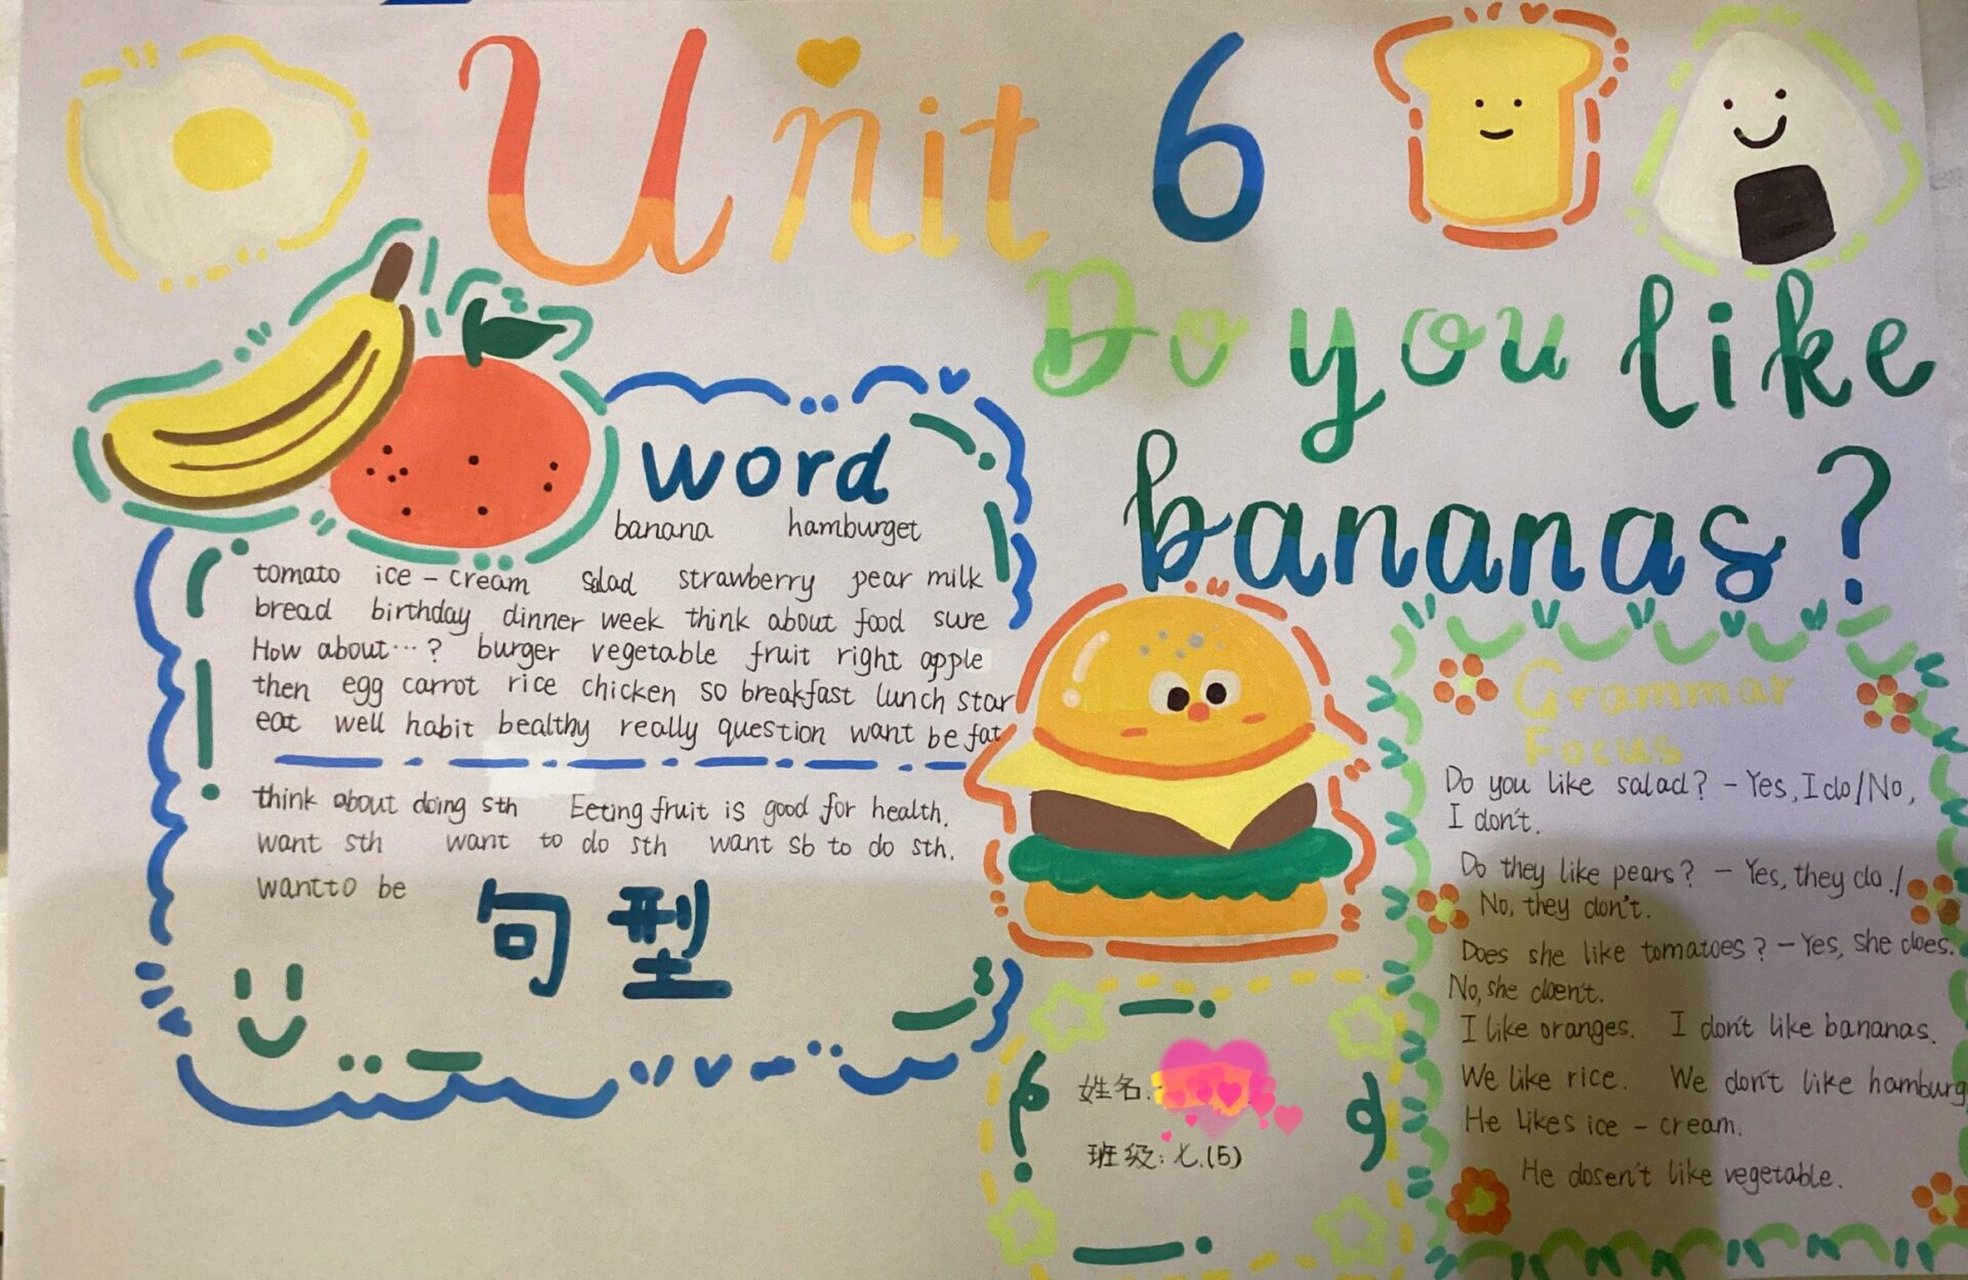 Unit 6
Do you like
bananas?
word
banana hamburget
tomato ice-cream salad strawberry pear milk
bread birthday dinner week think about food sure
How about…? burger vegetable fruit right apple
then egg carrot rice chicken so breakfast lunch star
eat well habit bealthy really question want be fat
think about doing sth Eeting fruit is good for health.
want sth want to do sth want sb to do sth.
want to be
句型
Grammar
Focus
Do you like salad? - Yes, I do/No,
I don't.
Do they like pears? - Yes, they do./
No, they don't.
Does she like tomatoes? - Yes, she does.
No, she doen't.
I like oranges. I don't like bananas.
We like rice. We don't like hamburg
He likes ice-cream.
He dosen't like vegetable.
姓名:
班级:七.(5)